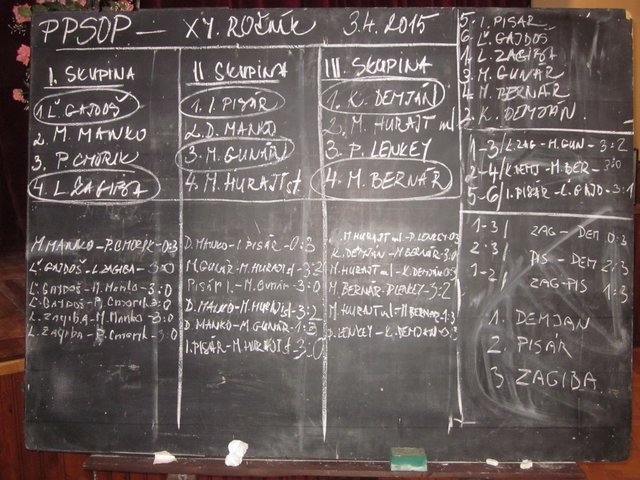 PPSOP — XV. ROČNÍK 3.4.2015
I. SKUPINA
1. Ľ. GAJDOŠ
2. M. MANKO
3. P. CMORIK
4. L. ZAGIBA
M. MANKO - P. CMORIK - 0:3
Ľ. GAJDOŠ - L. ZAGIBA - 3:0
Ľ. GAJDOŠ - M. Manko - 3:0
Ľ. GAJDOŠ - P. Cmorik - 3:0
L. ZAGIBA - M. Manko - 3:0
L. ZAGIBA - P. Cmorik - 3:0
II SKUPINA
1. I. PISÁR
2. D. MANKO
3. M. GUNÁR
4. M. HURAJT st
D. MANKO - I. PISÁR - 0:3
M. GUNÁR - M. HURAJT st - 3:2
PISÁR I. - M. GUNÁR - 3:0
D. MANKO - M. HURAJT st - 3:2
D. MANKO - M. GUNÁR - 1:3
I. PISÁR - M. HURAJT st 3:0
III. SKUPINA
1. K. DEMJÁN
2. M. HURAJT ml
3. P. LENKEY
4. M. BERNÁR
M. HURAJT ml - P. LENKEY - 0:3
K. DEMJÁN - M. BERNÁR - 3:0
M. HURAJT ml - K. DEMJÁN 0:3
M. BERNÁR - P. LENKEY - 3:2
M. HURAJT ml - M. BERNÁR - 1:3
P. LENKEY - K. DEMJÁN 0:3
5. I. PISÁR
6. Ľ. GAJDOŠ
1. L. ZAGIBA
3. M. GUNÁR
4. M. BERNÁR
2. K. DEMJÁN
1-3/ L. ZAG - M. GUN - 3:2
2-4/ K. DEMJ - M. BER - 3:0
5-6/ I. PISÁR - Ľ. GAJD - 3:1
1-3/ ZAG - DEM 0:3
2-3/ PIS - DEM 2:3
1-2/ ZAG - PIS 1:3
1. DEMJAN
2. PISÁR
3. ZAGIBA